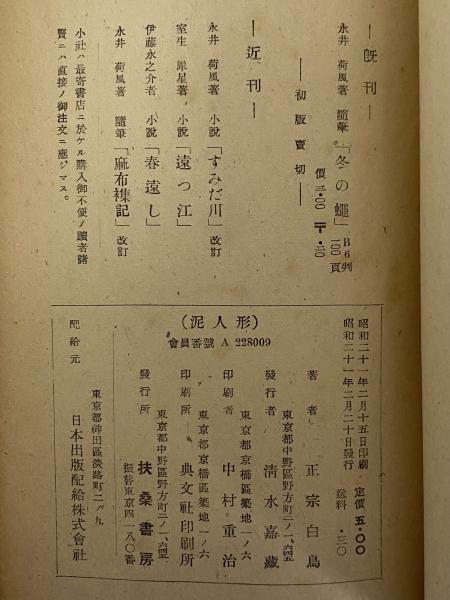 ―既刊―
永井 荷風著 隨筆「冬の蠅」B6判 100頁
價 三・〇〇 〒・二〇
―初版賣切―
―近刊―
永井 荷風著 小説「すみだ川」改訂
室生 犀星著 小説「遠つ江」
伊藤永之介著 小説「春遠し」
永井 荷風著 隨筆「麻布襍記」改訂
小社ハ最寄書店ニ於ケル購入御不便ノ讀者諸
賢ニハ直接ノ御注文ニ應ジマス。
(泥人形)
會員番號 A 228009
昭和二十一年二月十五日印刷
昭和二十一年二月二十日發行
定價 五・〇〇
送料 ・三〇
著者 正宗白鳥
東京都中野區野方町二ノ一、六四四
發行者 清水嘉藏
東京都京橋區築地一ノ六
印刷者 中村重治
東京都京橋區築地一ノ六
印刷所 典文社印刷所
東京都中野區野方町二ノ一、六四四
發行所 扶桑書房
振替東京四一八〇番
配給元
東京都神田區淡路町二ノ九
日本出版配給株式會社